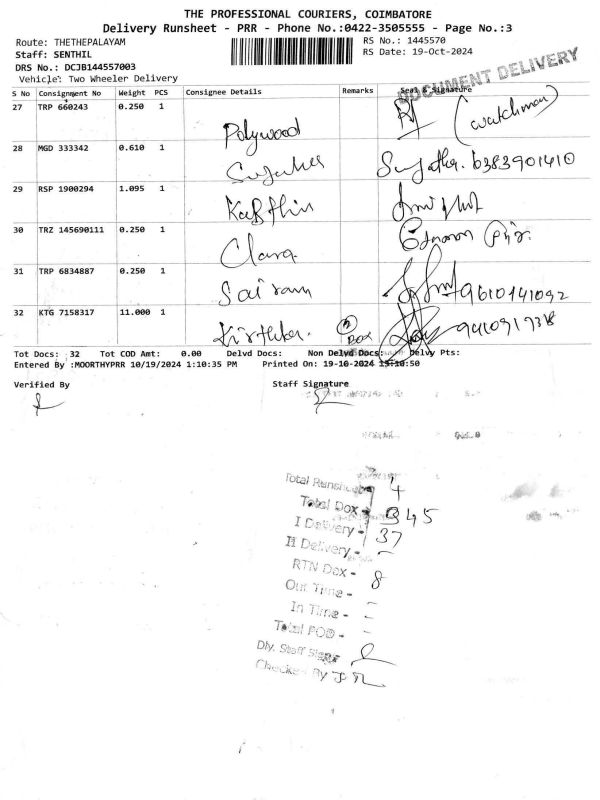 THE PROFESSIONAL COURIERS, COIMBATORE
Delivery Runsheet - PRR - Phone No.:0422-3505555 - Page No.:3
Route: THETHEPALAYAM
RS No.: 1445570
Staff: SENTHIL
RS Date: 19-Oct-2024
DRS No.: DCJB144557003
DOCUMENT DELIVERY
Vehicle: Two Wheeler Delivery
S No Consignment No Weight PCS Consignee Details Remarks Seal & Signature
27 TRP 660243 0.250 1 Polywood (watchman)
28 MGD 333342 0.610 1 Sujatha. 6383901410
29 RSP 1900294 1.095 1
30 TRZ 145690111 0.250 1 Clara
31 TRP 6834887 0.250 1 Sai ram 9610141092
32 KTG 7158317 11.000 1 Kirthika. Box
Tot Docs: 32 Tot COD Amt: 0.00 Delvd Docs: Non Delvd Docs: Delvy Pts:
Entered By :MOORTHYPRR 10/19/2024 1:10:35 PM Printed On: 19-10-2024 13:10:50
Verified By Staff Signature
Total Runsheet 4
Total Dox - 345
I Delivery - 37
II Delivery - –
RTN Dox - 8
Out Time - –
In Time - –
Total POD - –
Dly. Staff Sign
Checked By